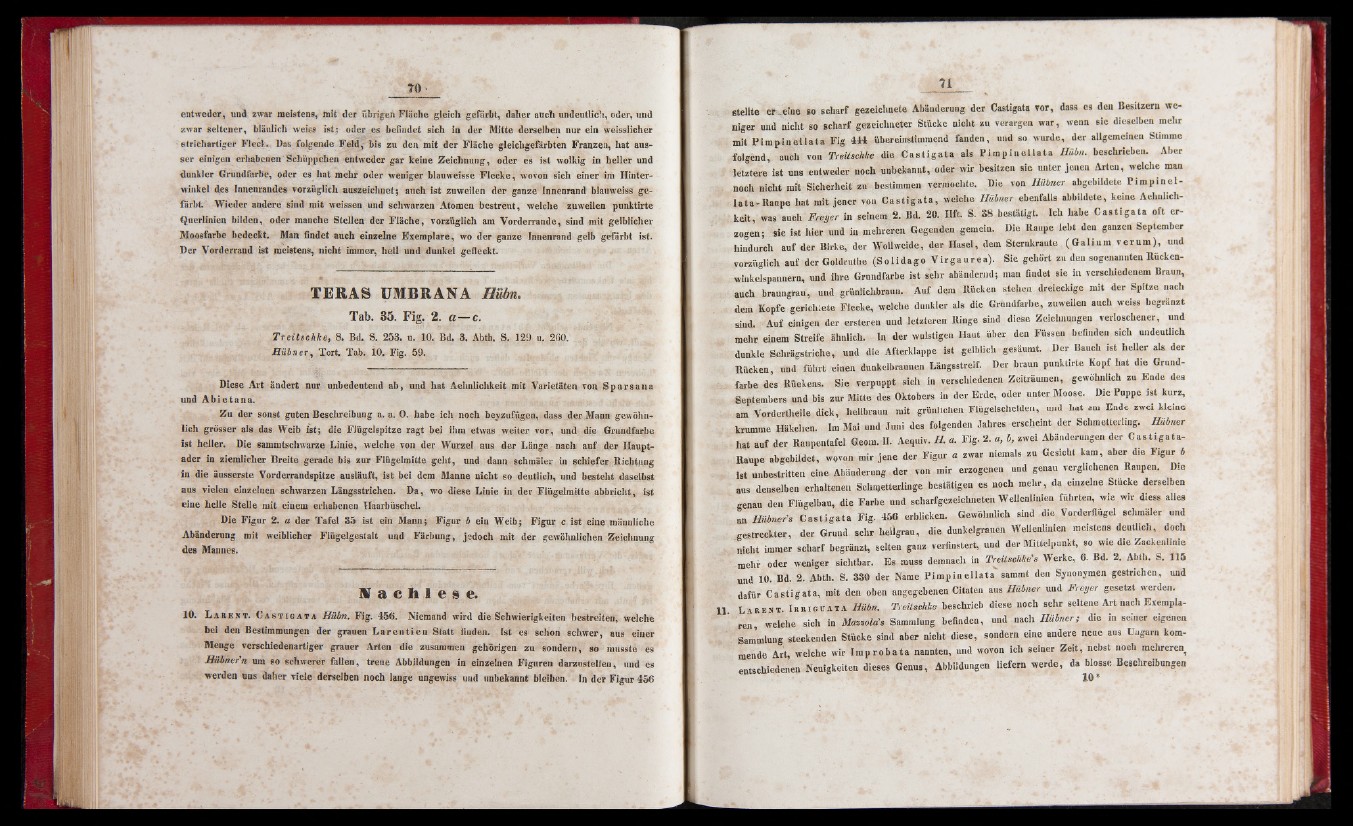 70
entweder, und zwar meistens, mit der übrigen Fläche gleich gefärbt, daher auch undeutlich, oder, und
zwar seltener, bläulich weiss ist; oder es befindet sich in der Mitte derselben nur ein weisslicher
strichartiger Fleck. Das folgende Feld, bis zu den mit der Fläche gleichgefärbten Franzen, hat aus-
ser einigen erhabenen Schüppchen entweder gar keine Zeichnung, oder es ist wolkig in heller und
dunkler Grundfarbe, oder es hat mehr oder weniger blauweisse Flecke, wovon sich einer im Hinter-
winkel des Innenrandes vorzüglich auszeichnet; auch ist zuweilen der ganze Innenrand blauweiss ge-
färbt. Wieder andere sind mit weissen und schwarzen Atomen bestreut, welche zuweilen punktirte
Querlinien bilden, oder manche Stellen der Fläche, vorzüglich am Vorderrande, sind mit gelblicher
Moosfarbe bedeckt. Man findet auch einzelne Exemplare, wo der ganze Innenrand gelb gefärbt ist.
Der Vorderrand ist meistens, nicht immer, hell und dunkel gefleckt.
TERAS UMBRANA Hübn.
Tab. 35. Fig. 2. a—c.
Treitschke, 8. Bd. S. 253. u. 10. Bd. 3. Abth. S. 129 u. 260.
Hübner, Tort. Tab. 10. Fig. 59.
Diese Art ändert nur unbedeutend ab, und hat Aehnlichkeit mit Varietäten von Sparsana
und Abietana.
Zu der sonst guten Beschreibung a. a. O. habe ich noch beyzufügen, dass der Mann gewöhn-
lich grösser als das Weib ist; die Flügelspitze ragt bei ihm etwas weiter vor, und die Grundfarbe
ist heller. Die sammtschwarze Linie, welche von der Wurzel aus der Länge nach auf der Haupt-
ader in ziemlicher Breite gerade bis zur Flügelmitte geht, und dann schmäler in schiefer Richtung
in die äusserste Vorderrandspitze ausläuft, ist bei dem Manne nicht so deutlich, und besteht daselbst
aus vielen einzelnen schwarzen Längsstrichen. Da, wo diese Linie in der Flügelmitte abbricht, ist
eine helle Stelle mit einem erhabenen Haarbüschel.
Die Figur 2. a der Tafel 35 ist ein Mann; Figur b ein Weib; Figur c ist eine männliche
Abänderung mit weiblicher Flügelgestalt und Färbung, jedoch mit der gewöhnlichen Zeichnung
des Mannes.
Nachlese.
10. LARENT. CASTIGATA Hübn. Fig. 456. Niemand wird die Schwierigkeiten bestreiten, welche
bei den Bestimmungen der grauen Larentien Statt finden. Ist es schon schwer, aus einer
Menge verschiedenartiger grauer Arten die zusammen gehörigen zu sondern, so musste es
Hübner'n um so schwerer fallen, treue Abbildungen in einzelnen Figuren darzustellen, und es
werden uns daher viele derselben noch lange ungewiss und unbekannt bleiben. In der Figur 456
71
stellte er eine so scharf gezeichnete Abänderung der Castigata vor, dass es den Besitzern we-
niger und nicht so scharf gezeichneter Stücke nicht zu verargen war, wenn sie dieselben mehr
mit Pimpinellata Fig. 444 übereinstimmend fanden, und so wurde, der allgemeinen Stimme
folgend, auch von Treitschke die Castigata als Pimpinellata Hübn. beschrieben. Aber
letztere ist uns entweder noch unbekannt, oder wir besitzen sie unter jenen Arten, welche man
noch nicht mit Sicherheit zu bestimmen vermochte. Die von Hübner abgebildete Pimpinel-
lata-Raupe hat mit jener von Castigata, welche Hübner ebenfalls abbildete, keine Aehnlich-
keit, was auch Freyer in seinem 2. Bd. 20. Hft. S. 38 bestätigt. Ich habe Castigata oft er-
zogen; sie ist hier und in mehreren Gegenden gemein. Die Raupe lebt den ganzen September
hindurch auf der Birke, der Wollweide, der Hasel, dem Sternkraute (Galium verum), und
vorzüglich auf der Goldruthe (Solidago Virgaurea). Sie gehört zu den sogenannten Rücken-
winkelspannern, und ihre Grundfarbe ist sehr abändernd; man findet sie in verschiedenem Braun,
auch braungrau, und grünlichbraun. Auf dem Rücken stehen dreieckige mit der Spitze nach
dem Kopfe gerichtete Flecke, welche dunkler als die Grundfarbe, zuweilen auch weiss begränzt
sind. Auf einigen der ersteren und letzteren Ringe sind diese Zeichnungen verloschener, und
mehr einem Streife ähnlich. In der wulstigen Haut über den Füssen befinden sich undeutlich
dunkle Schrägstriche, und die Afterklappe ist gelblich gesäumt. Der Bauch ist heller als der
Rücken, und führt einen dunkelbraunen Längsstreif. Der braun punktirte Kopf hat die Grund-
farbe des Rückens. Sie verpuppt sich in verschiedenen Zeiträumen, gewöhnlich zu Ende des
Septembers und bis zur Mitte des Oktobers in der Erde, oder unter Moose. Die Puppe ist kurz,
am Vordertheile dick, hellbraun mit grünlichen Flügelscheiden, und hat am Ende zwei kleine
krumme Häkchen. Im Mai und Juni des folgenden Jahres erscheint der Schmetterling. Hübner
hat auf der Raupentafel Geom. II. Aequiv. H. a. Fig. 2. a, b, zwei Abänderungen der Castigata-
Raupe abgebildet, wovon mir jene der Figur a zwar niemals zu Gesicht kam, aber die Figur b
ist unbestritten eine Abänderung der von mir erzogenen und genau verglichenen Raupen. Die
aus denselben erhaltenen Schmetterlinge bestätigen es noch mehr, da einzelne Stücke derselben
genau den Flügelbau, die Farbe und scharfgezeichneten Wellenlinien führten, wie wir diess alles
an Hübner's Castigata Fig. 456 erblicken. Gewöhnlich sind die Vorderflügel schmäler und
gestreckter, der Grund sehr hellgrau, die dunkelgrauen Wellenlinien meistens deutlich, doch
nicht immer scharf begränzt, selten ganz verfinstert, und der Mittelpunkt, so wie die Zackenlinie
mehr oder weniger sichtbar. Es muss demnach in Treitschke's Werke, 6. Bd. 2. Abth. S. 115
und 10. Bd. 2. Abth. S. 330 der Name Pimpinellata sammt den Synonymen gestrichen, und
dafür Castigata, mit den oben angegebenen Citaten aus Hübner und Freyer gesetzt werden.
11. LARENT. IRRIGUATA Hübn. Treitschke beschrieb diese noch sehr seltene Art nach Exempla-
ren, welche sich in Mazzola's Sammlung befinden, und nach Hübner; die in seiner eigenen
Sammlung steckenden Stücke sind aber nicht diese, sondern eine andere neue aus Ungarn kom-
mende Art, welche wir Improbata nannten, und wovon ich seiner Zeit, nebst noch mehreren
entschiedenen Neuigkeiten dieses Genus, Abbildungen liefern werde, da blosse Beschreibungen
10*